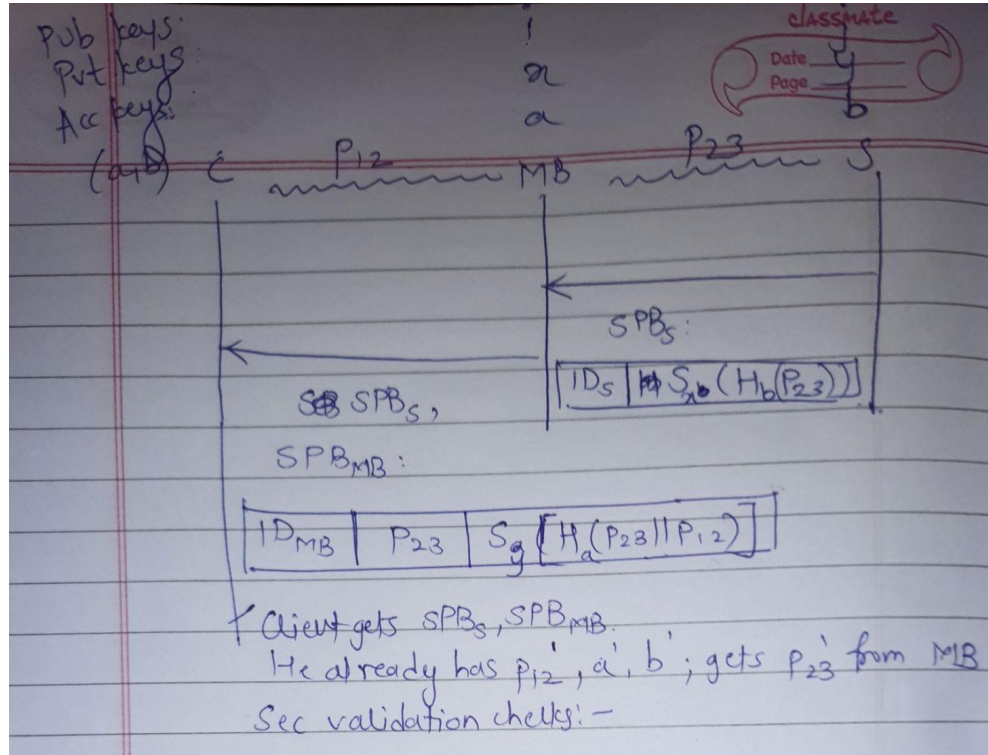 classmate
Date
Page
Pub keys:
Pvt keys: x y
Acc keys: a b
(a,b) C P12 MB P23 S
SPBS:
IDS | Sx (Hb(P23))
SPBS,
SPBMB:
IDMB | P23 | Sy [Ha(P23||P12)]
Client gets SPBS, SPBMB.
He already has P12', a', b'; gets P23' from MB
Sec validation checks:-